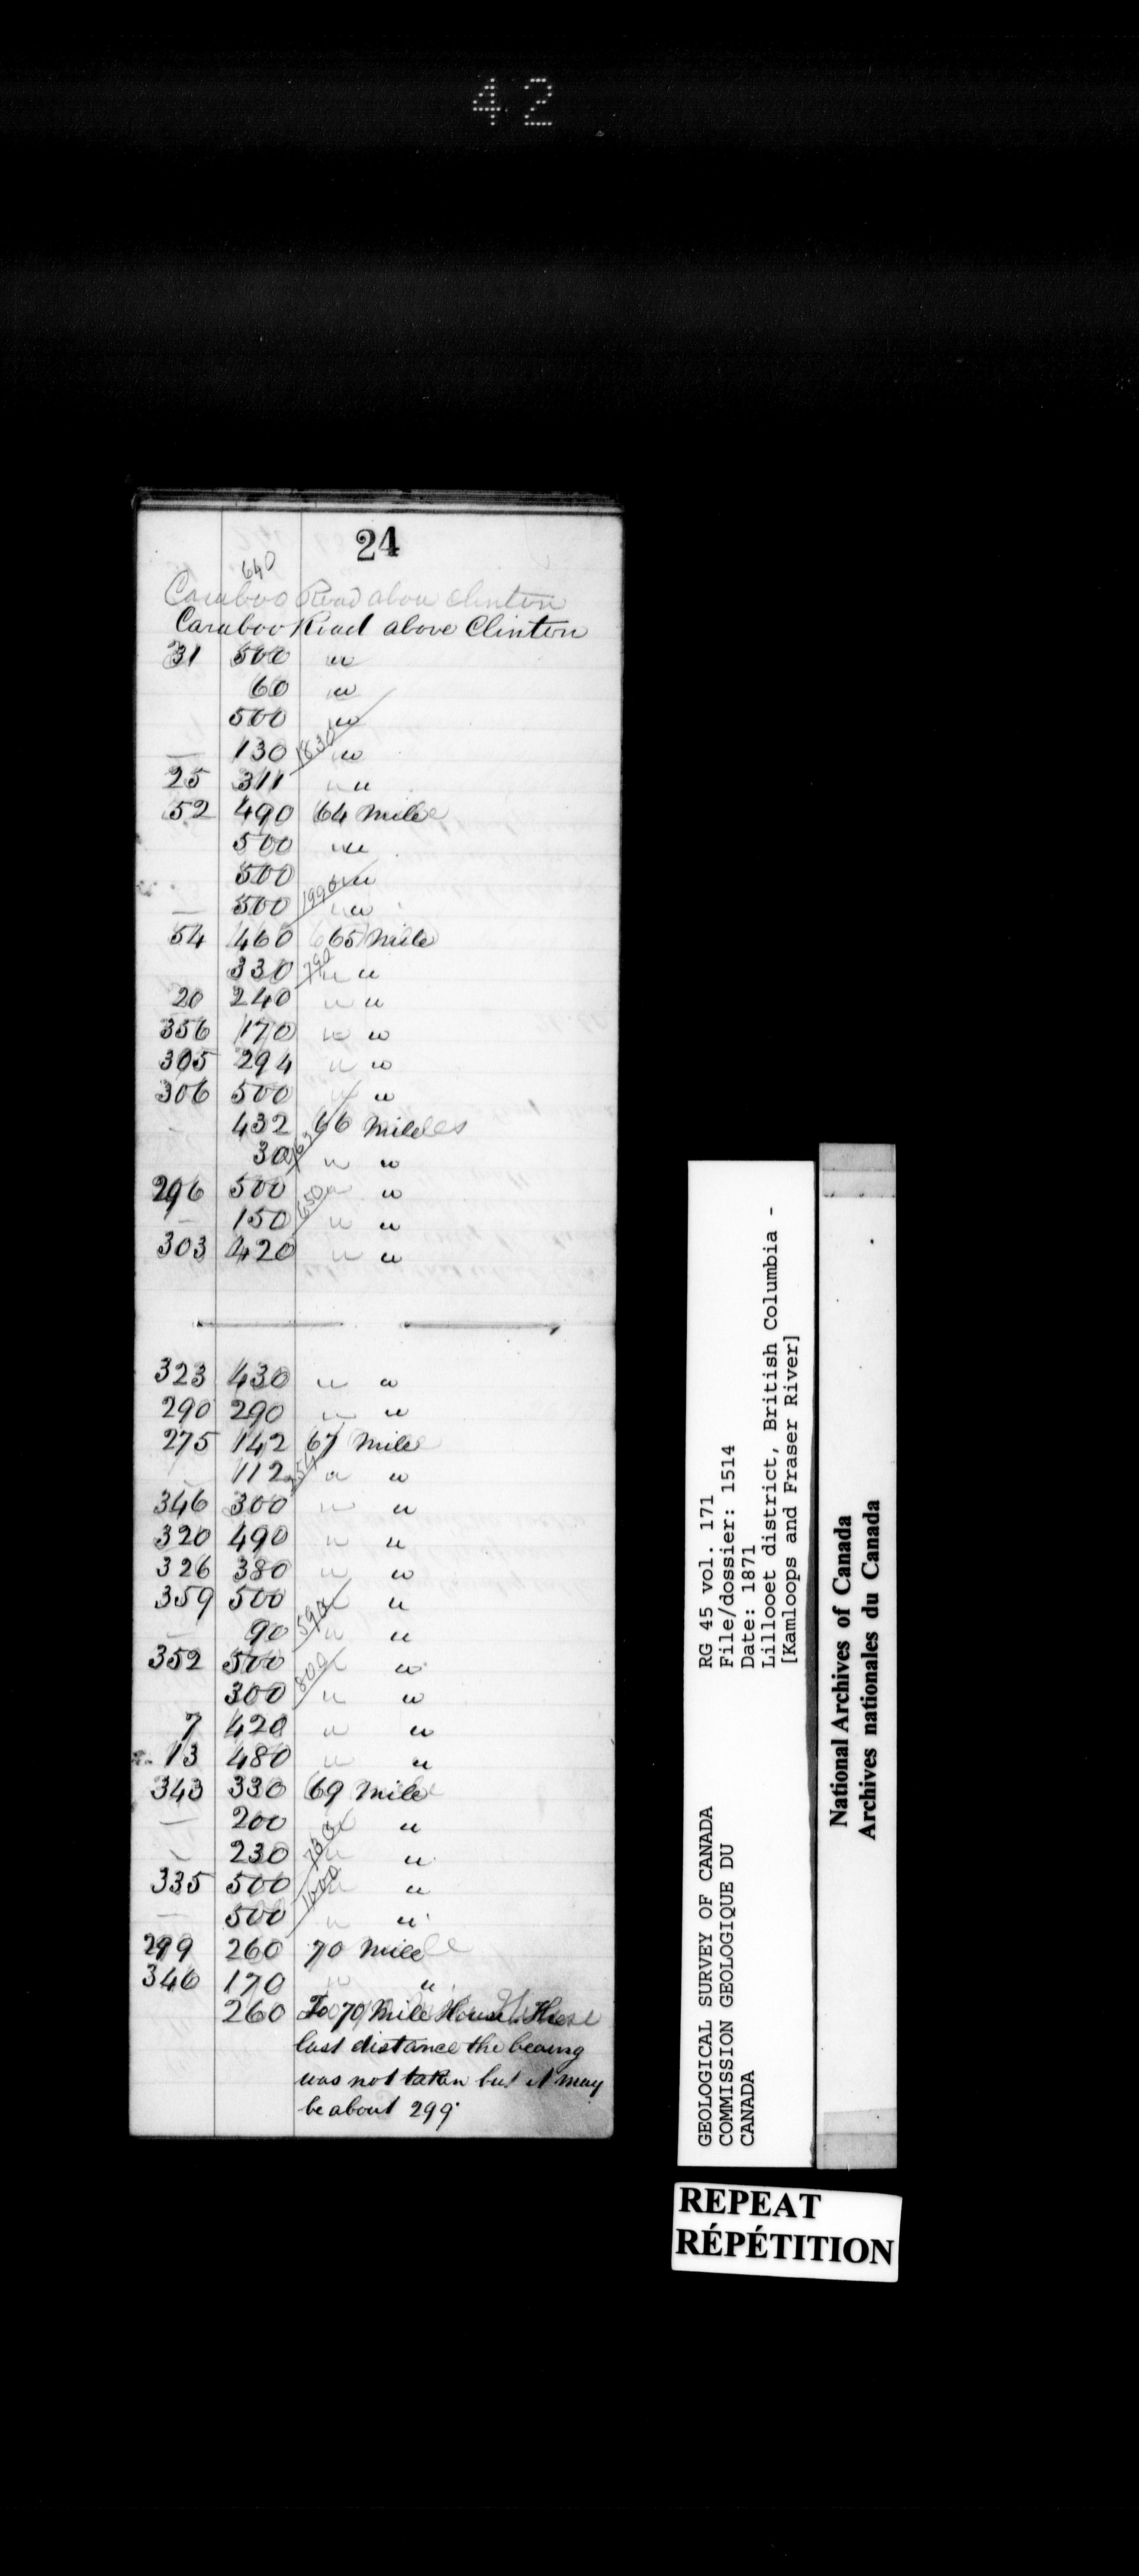 42
24
640
Caraboo Road above Clinton
Caraboo Road above Clinton
31 500 "
60 "
500 "
130 1830 "
25 311 " "
52 490 64 Mile
500 "
500 "
500 1990 "
54 460 65 Mile
330 790 " "
20 240 " "
356 170 " "
305 294 " "
306 500 " "
432 66 Miles
30 " "
296 500 " "
150 650 " "
303 420 " "
323 430 " "
290 290 " "
275 142 67 Mile
112 254 " "
346 300 " "
320 490 " "
326 380 " "
359 500 " "
90 590 " "
352 500 " "
300 800 " "
7 420 " "
13 480 " "
343 330 69 Mile
— 200 "
230 730 " "
335 500 " "
— 500 1000 " "
299 260 70 Mile
346 170 " "
260 To 70 Mile House. These
last distance the bearing
was not taken but it may
be about 299°
GEOLOGICAL SURVEY OF CANADA
COMMISSION GEOLOGIQUE DU
CANADA
RG 45 vol. 171
File/dossier: 1514
Date: 1871
Lillooet district, British Columbia -
[Kamloops and Fraser River]
National Archives of Canada
Archives nationales du Canada
REPEAT
RÉPÉTITION